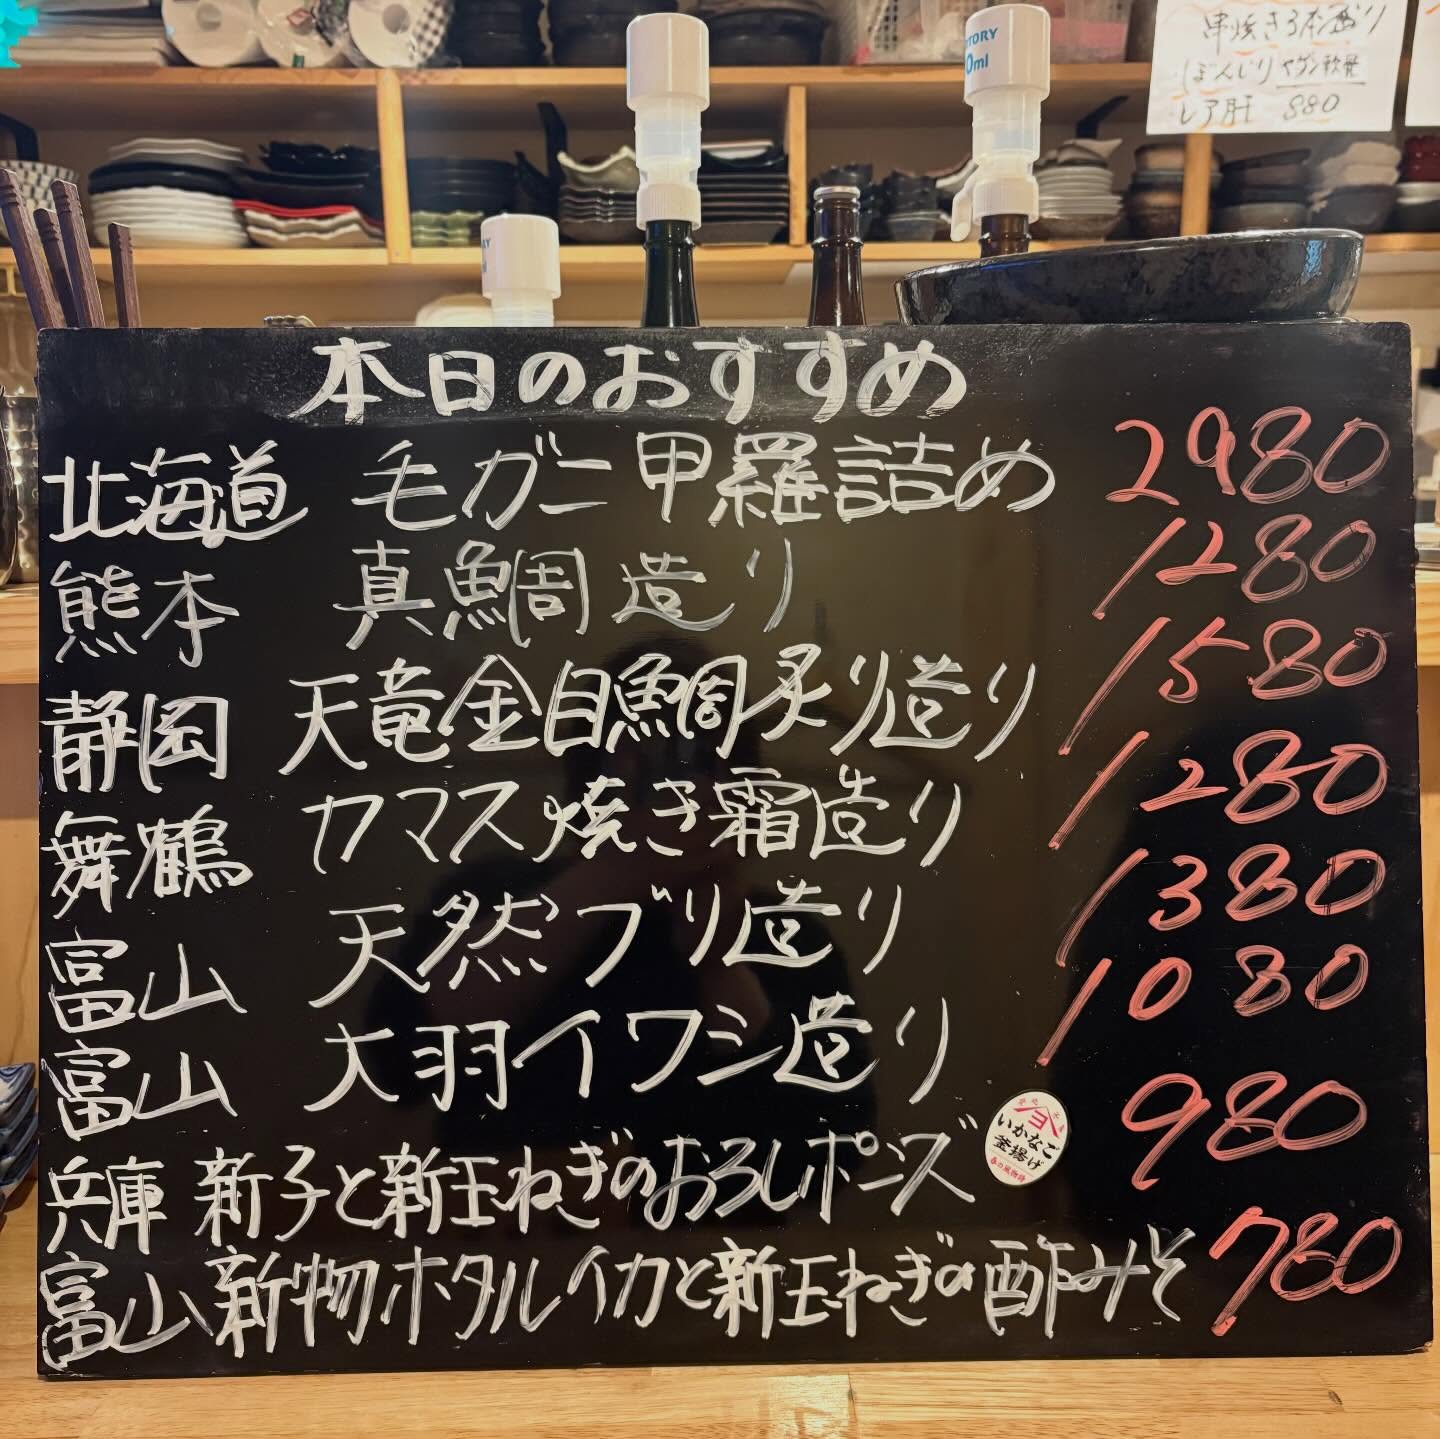 TORY
0ml
串焼き3本盛り
ぼんじり ヤゲン軟骨
レア肝 880
本日のおすすめ
北海道 毛ガニ甲羅詰め 2980
熊本 真鯛造り 1280
静岡 天竜金目鯛炙り造り 1580
舞鶴 カマス焼き霜造り 1280
富山 天然ブリ造り 1380
富山 大羽イワシ造り 1080
兵庫 新子と新玉ねぎのおろしポンズ 980
ヨ
いかなご
釜揚げ
春の風物詩
富山 新物ホタルイカと新玉ねぎの酢みそ 780